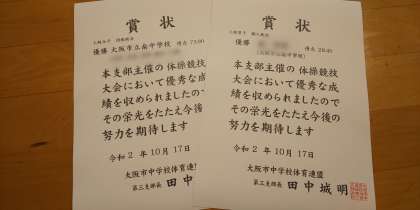 賞状
優勝 大阪市立南中学校 得点 73.60
本支部主催の 体操競技
大会において優秀な成
績を収められましたので
その栄光をたたえ今後
努力を期待します
令和 2 年 10月 17日
大阪市中学校体育連盟
第三支部長 田中
賞状
優勝
得点
本支部主催の 体操競技
大会において優秀な成
績を収められましたので
その栄光をたたえ今後の
努力を期待します
令和 2 年 10月 17日
大阪市中学校体育連盟
第三支部長 田中城明